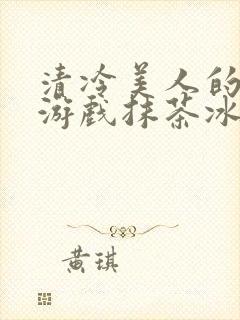 清冷美人的
游戏抹茶冰
黄琪